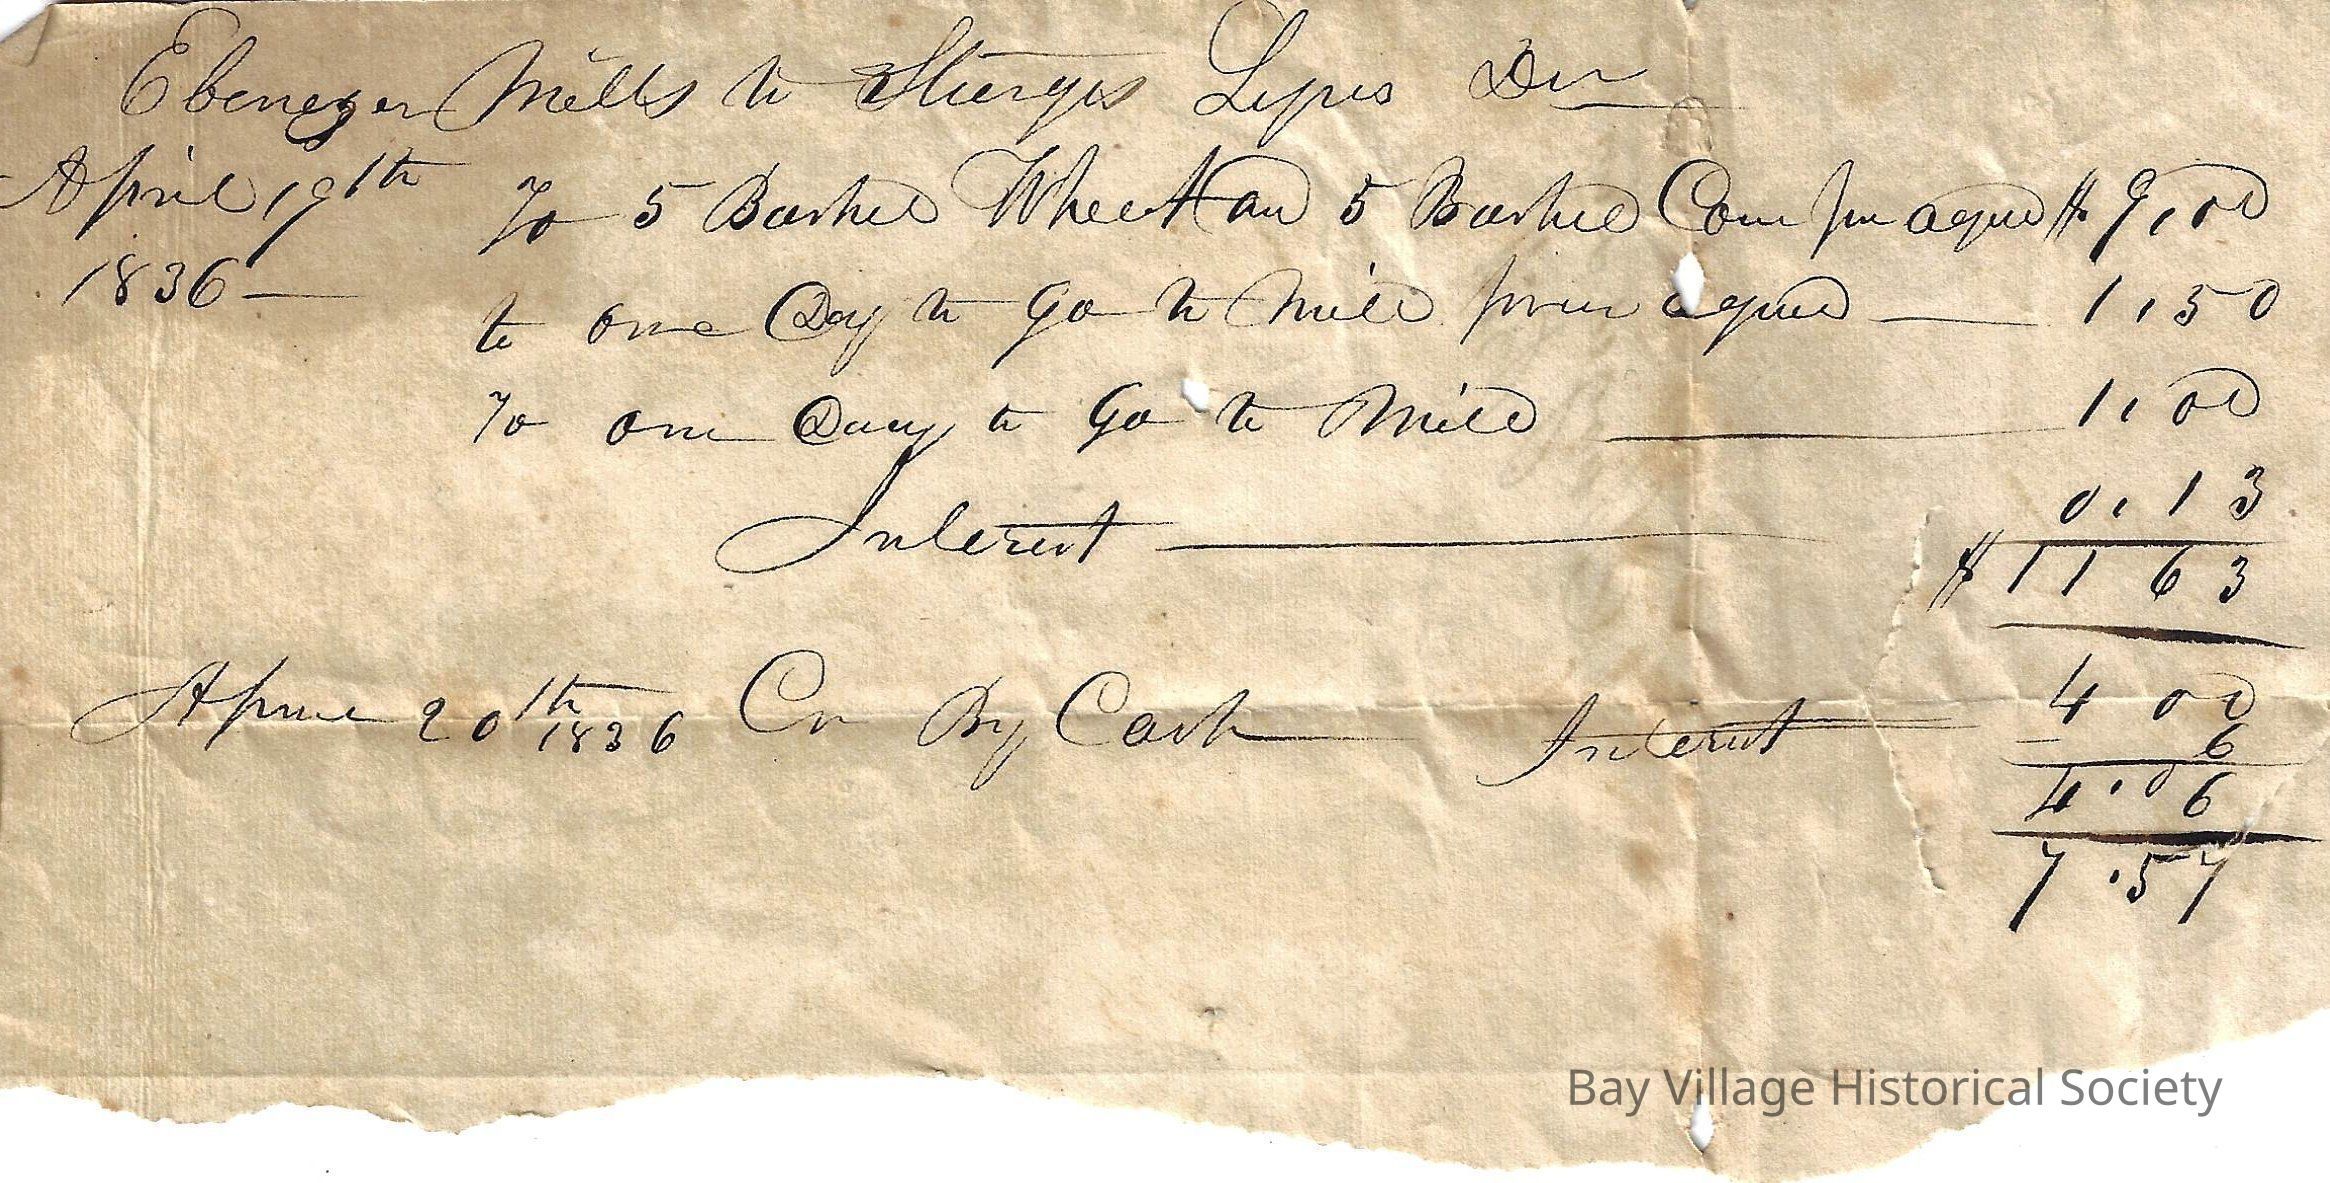 Ebenezer Mills to Sturges Lynes Dr
April 19th To 5 Bushel Wheat an 5 Bushel Corn $ 9,00
1836 — to one Day to Go to Mill agreed — 1,50
To one Day to Go to Mill — 1,00
0,13
Interest — $ 11 63
April 20th 1836 Cr By Cash — Interest 4 00
6
4.06
7.57
Bay Village Historical Society